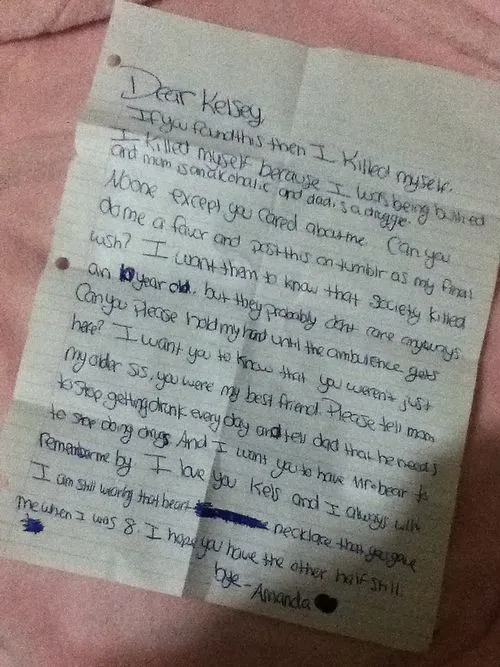 Dear Kelsey,
If you found this then I Killed myself.
I Killed myself because I was being bullied
and mom is an alkoholic and dad is a druggie.
Noone except you cared about me. Can you
do me a favor and post this on tumblr as my final
wish? I want them to know that society killed
an 10 year old. but they probably dont care anyways
Can you Please hold my hand until the ambulence gets
here? I want you to know that you weren't just
my older sis, you were my best friend. Please tell mom
to stop getting drunk every day and tell dad that he needs
to stop doing drugs And I want you to have Mr. bear to
remember me by I love you Kels and I always will
I am still wearing that heart necklace that you gave
me when I was 8. I hope you have the other half still.
bye - Amanda